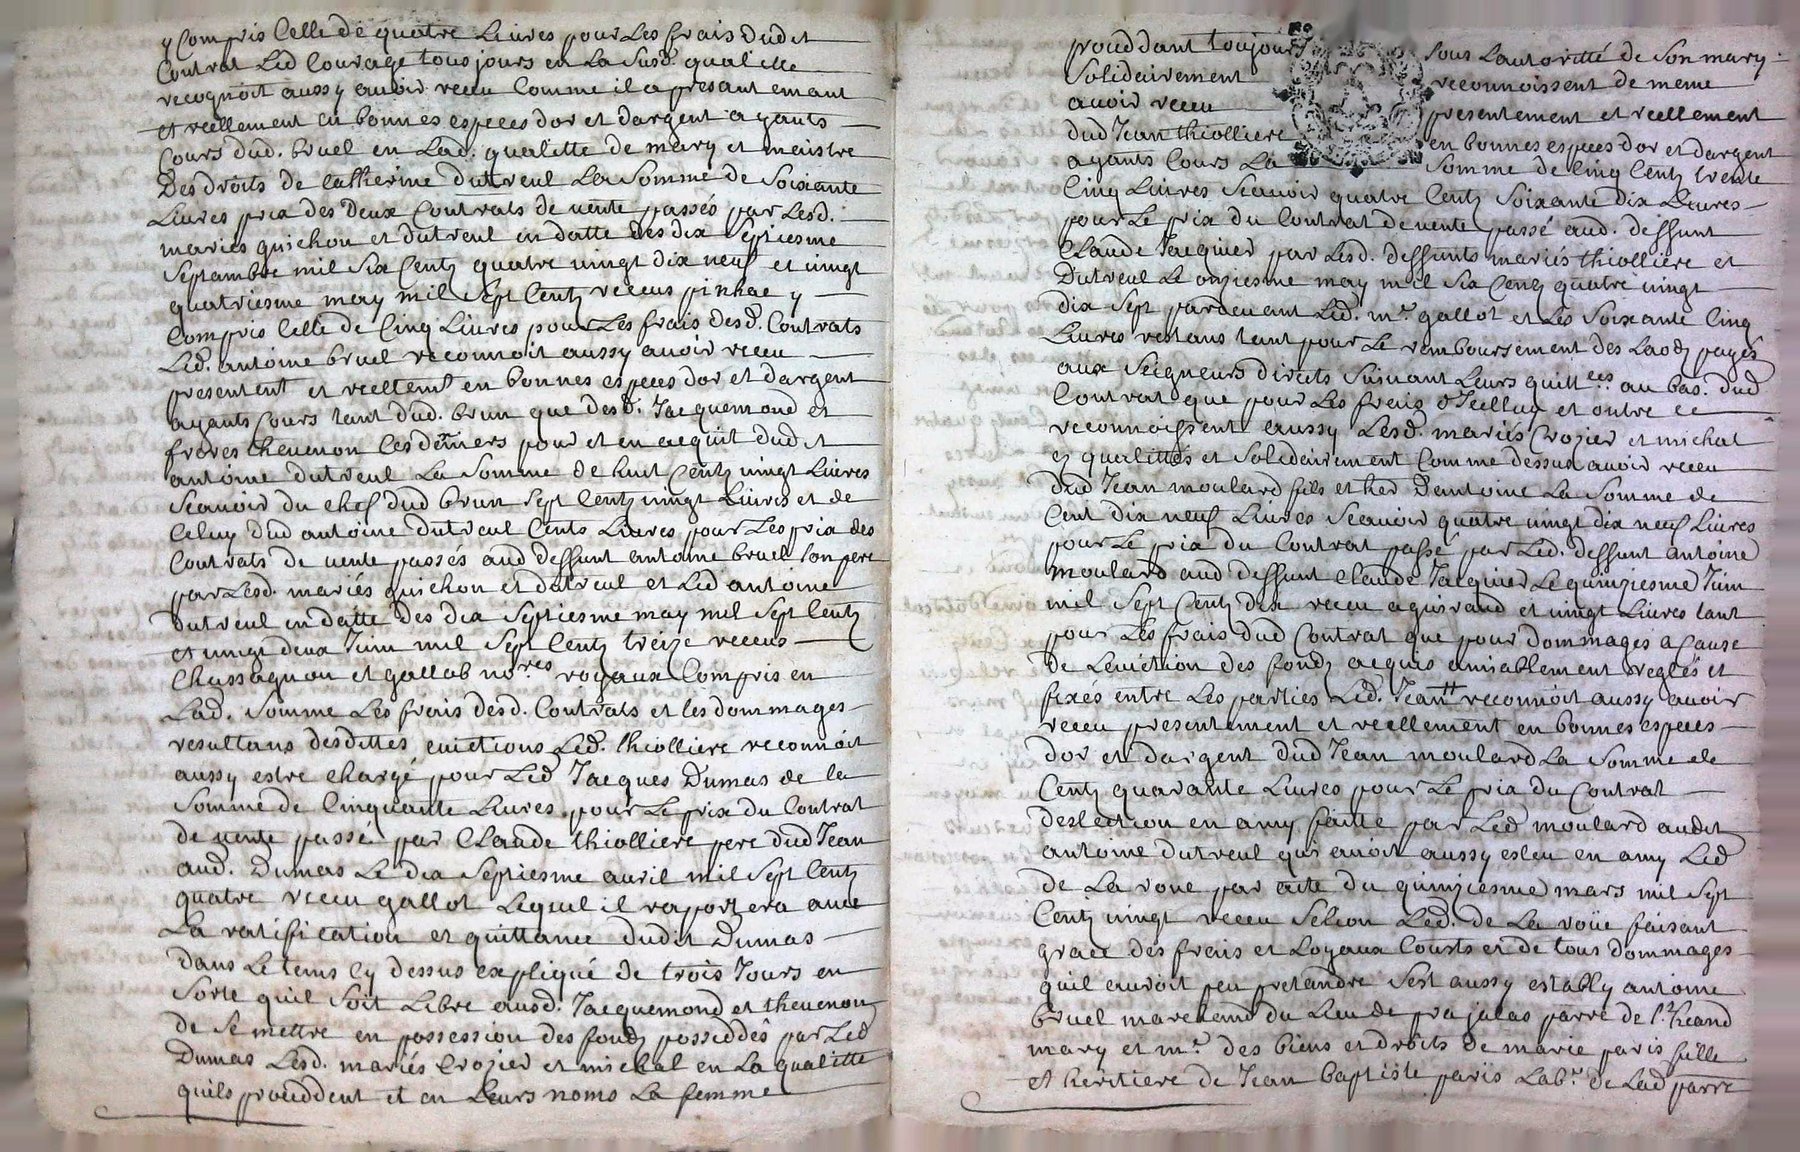 y Compris Celle de quatre Livres pour Les frais dudit
Contrat Led Courage tousjours en La Susd. qualitte
recognoit aussy avoir receu Comme il a presantemant
et reellement en bonnes especes dor et dargent ayants
Cours dud. bruel en Lad. qualitte de mary et maistre
Des droits de Catherine dutreul La Somme de Soixante
Livres prix des Deux Contrats de vente passés par Lesd.
mariés guichon et dutreul en datte des dix Septiesme
Septambre mil Six Centz quatre vingt dix neuf et vingt
quatriesme may mil Sept Centz receus pinhac y
Compris Celle de Cinq Livres pour Les frais desd. Contrats
Led. antoine bruel reconnoit aussy avoir receu
presentent et reellemt en bonnes especes dor et dargent
ayants Cours tant dud. brun que desd. Jacquemond et
freres thevenon Ces derniers pour et en acquit dudit
antoine dutreul La Somme de huit Centz vingt Livres
Scavoir du chef dud brun Sept Centz vingt Livres et de
Celuy dud antoine dutreul Cents Livres pour Les prix des
Contrats de vente passés aud deffunt antoine bruel Son pere
par Lesd. mariés guichon et dutreul et Led antoine
Dutreul en datte des dix Septiesme may mil Sept Centz
et vingt deux Juin mil Sept Centz treize receus
Chassagnon et gallot no.res royaux Compris en
Lad. Somme Les frais desd. Contrats et les dommages
resultans desdittes evictions Led. thiolliere reconnoit
aussy estre chargé pour Led Jacques Dumas de la
Somme de Cinquante Livres pour Le prix du Contrat
de vente passé par Claude thiolliere pere dud Jean
aud. Dumas Le dix Septiesme avril mil Sept Centz
quatre receu gallot Lequel il raportera avec
La ratification et quittance dudit Dumas
dans Le tems Cy dessus expliqué de trois Jours en
Sorte quil Soit Libre ausd. Jacquemond et thevenon
de Se mettre en possession des fondz possedés par Led
Dumas Lesd. mariés Crozier et michal en La qualitte
quils proceddent et en Leurs noms La femme
proceddant toujours sous Lautoritté de Son mary
Solidairement reconnoissent de meme
avoir receu presentement et reellement
dud Jean thiolliere en bonnes especes dor et dargent
ayants Cours La Somme de Cinq Centz trente
Cinq Livres Scavoir quatre Centz Soixante dix Livres
pour Le prix du Contrat de vente passé aud. deffunt
Claude Jacquier par Lesd. deffunts mariés thiolliere et
Dutreul Le onziesme may mil Six Centz quatre vingt
dix Sept pardevant Led. m.e gallot et Les Soixante Cinq
Livres restans tant pour Le remboursement des Laods payés
aux Seigneurs directs Suivant Leurs quitt.ces au bas. dud
Contrat que pour Les frais d'Jcelluy et outre ce
reconnoissent aussy Lesd. mariés Crozier et michal
ez qualittés et Solidairement Comme dessus avoir receu
Dud Jean moulard fils et her Dantoine La Somme de
Cent dix neuf Livres Scavoir quatre vingt dix neuf Livres
pour Le prix du Contrat passé par Led. deffunt antoine
moulard aud deffunt Claude Jacquier Le quinziesme Juin
mil Sept Centz dix receu aguirand et vingt Livres tant
pour Les frais dud Contrat que pour dommages a Cause
de Leviction des fondz acquis amiablement reglés et
fixés entre Les parties Led. Jean tt reconnoit aussy avoir
receu presentement et reellement en bonnes especes
dor et dargent dud Jean moulard La Somme de
Centz quarante Livres pour Le prix du Contrat
deslection en amy faitte par Led moulard audit
antoine dutreul qui avoit aussy esleu en amy Led
de La roue par acte du quinziesme mars mil Sept
Centz vingt receu Selion Led. de La roüe faisant
grace des frais et Loyaux Cousts et de tous dommages
quil auroit peu pretandre Sest aussy estably antoine
bruel marchand du Lieu de parre de
mary et m.e des biens et droits de marie paris fille
et heritiere de Jean baptiste paris Lab.r de Lad parre